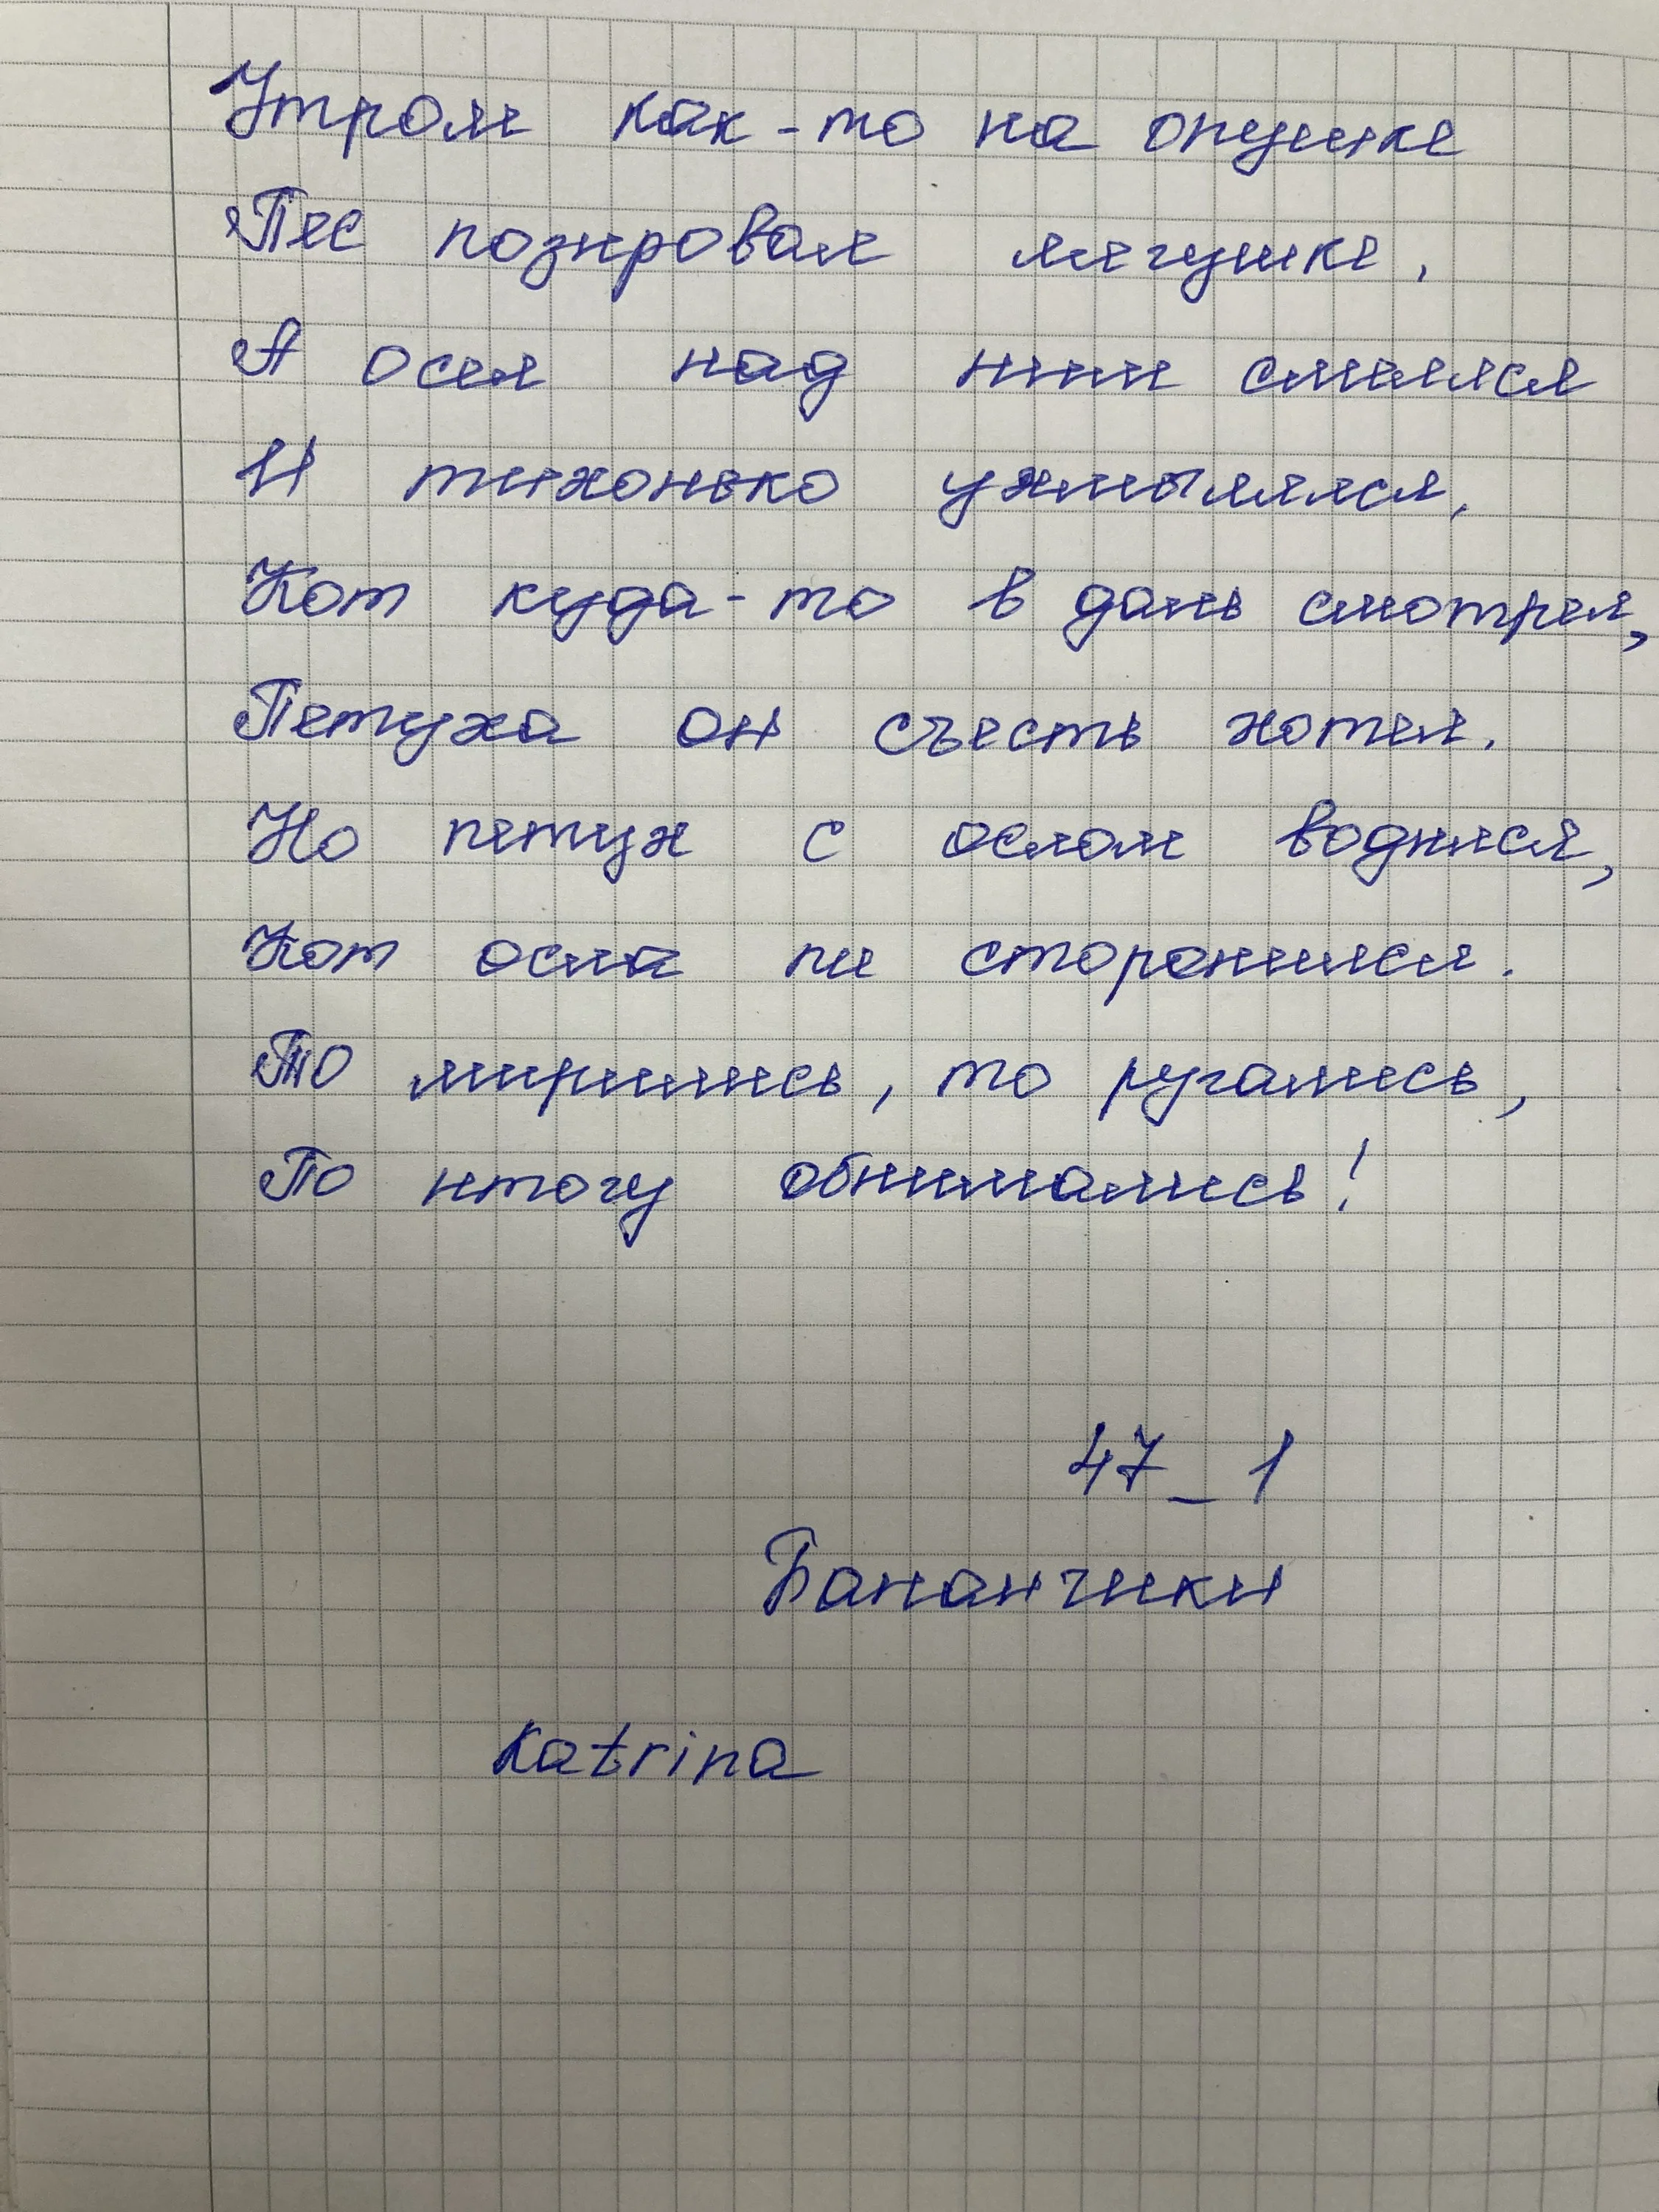 Утром как-то на опушке
Пес позировал лягушке,
А осел над ним смеялся
И тихонько ухмылялся,
Кот куда-то в даль смотрел,
Петуха он съесть хотел.
Но петух с ослом водился,
Кот осла не сторонился.
То мирились, то ругались,
По итогу обнимались!
47_1
Бананчики
Katrina